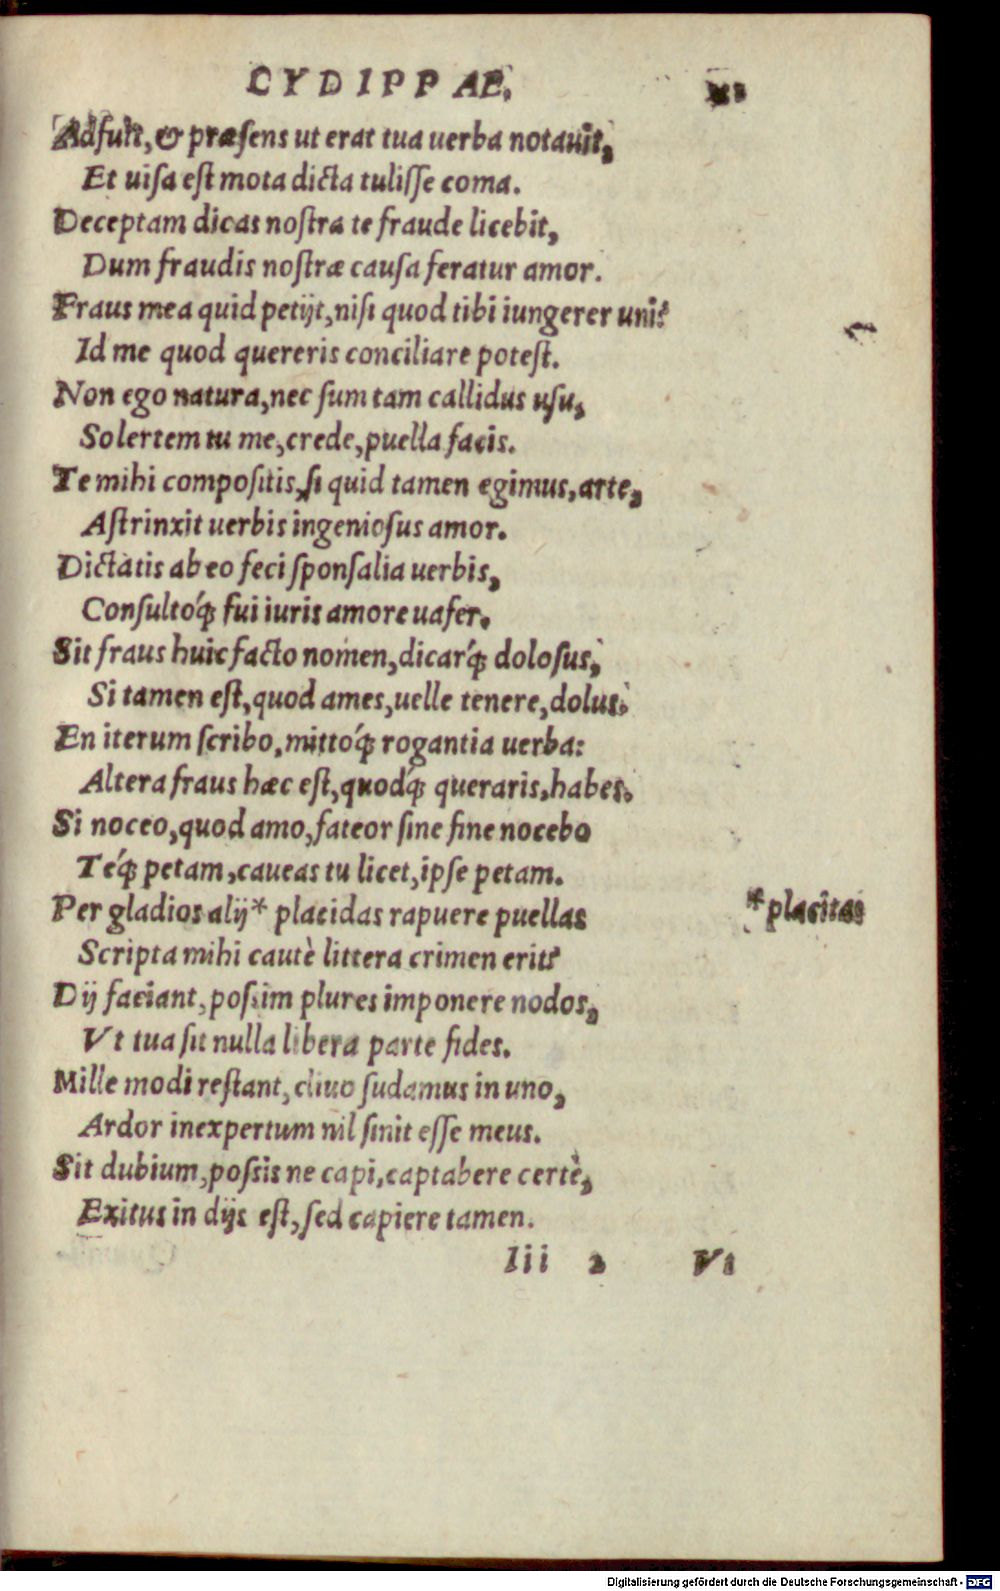 CYDIPPAE.
Adfuit, & præsens ut erat tua uerba notauit,
Et uisa est mota dicta tulisse coma.
Deceptam dicas nostra te fraude licebit,
Dum fraudis nostræ causa feratur amor.
Fraus mea quid petijt, nisi quod tibi iungerer uni?
Id me quod quereris conciliare potest.
Non ego natura, nec sum tam callidus usu,
Solertem tu me, crede, puella facis.
Te mihi compositis, si quid tamen egimus, arte,
Astrinxit uerbis ingeniosus amor.
Dictatis ab eo feci sponsalia uerbis,
Consultoq́; fui iuris amore uafer.
Sit fraus huic facto nomen, dicarq́; dolosus,
Si tamen est, quod ames, uelle tenere, dolus.
En iterum scribo, mittoq́; rogantia uerba:
Altera fraus hæc est, quodq́; queraris, habes.
Si noceo, quod amo, fateor sine fine nocebo
Teq́; petam, caueas tu licet, ipse petam.
Per gladios alij* placidas rapuere puellas
*placitas
Scripta mihi cautè littera crimen erit?
Dij faciant, possim plures imponere nodos,
Vt tua sit nulla libera parte fides.
Mille modi restant, cliuo sudamus in uno,
Ardor inexpertum nil sinit esse meus.
Sit dubium, possis ne capi, captabere certè,
Exitus in dijs est, sed capiere tamen.
Iii 2 Vt
Digitalisierung gefördert durch die Deutsche Forschungsgemeinschaft - DFG